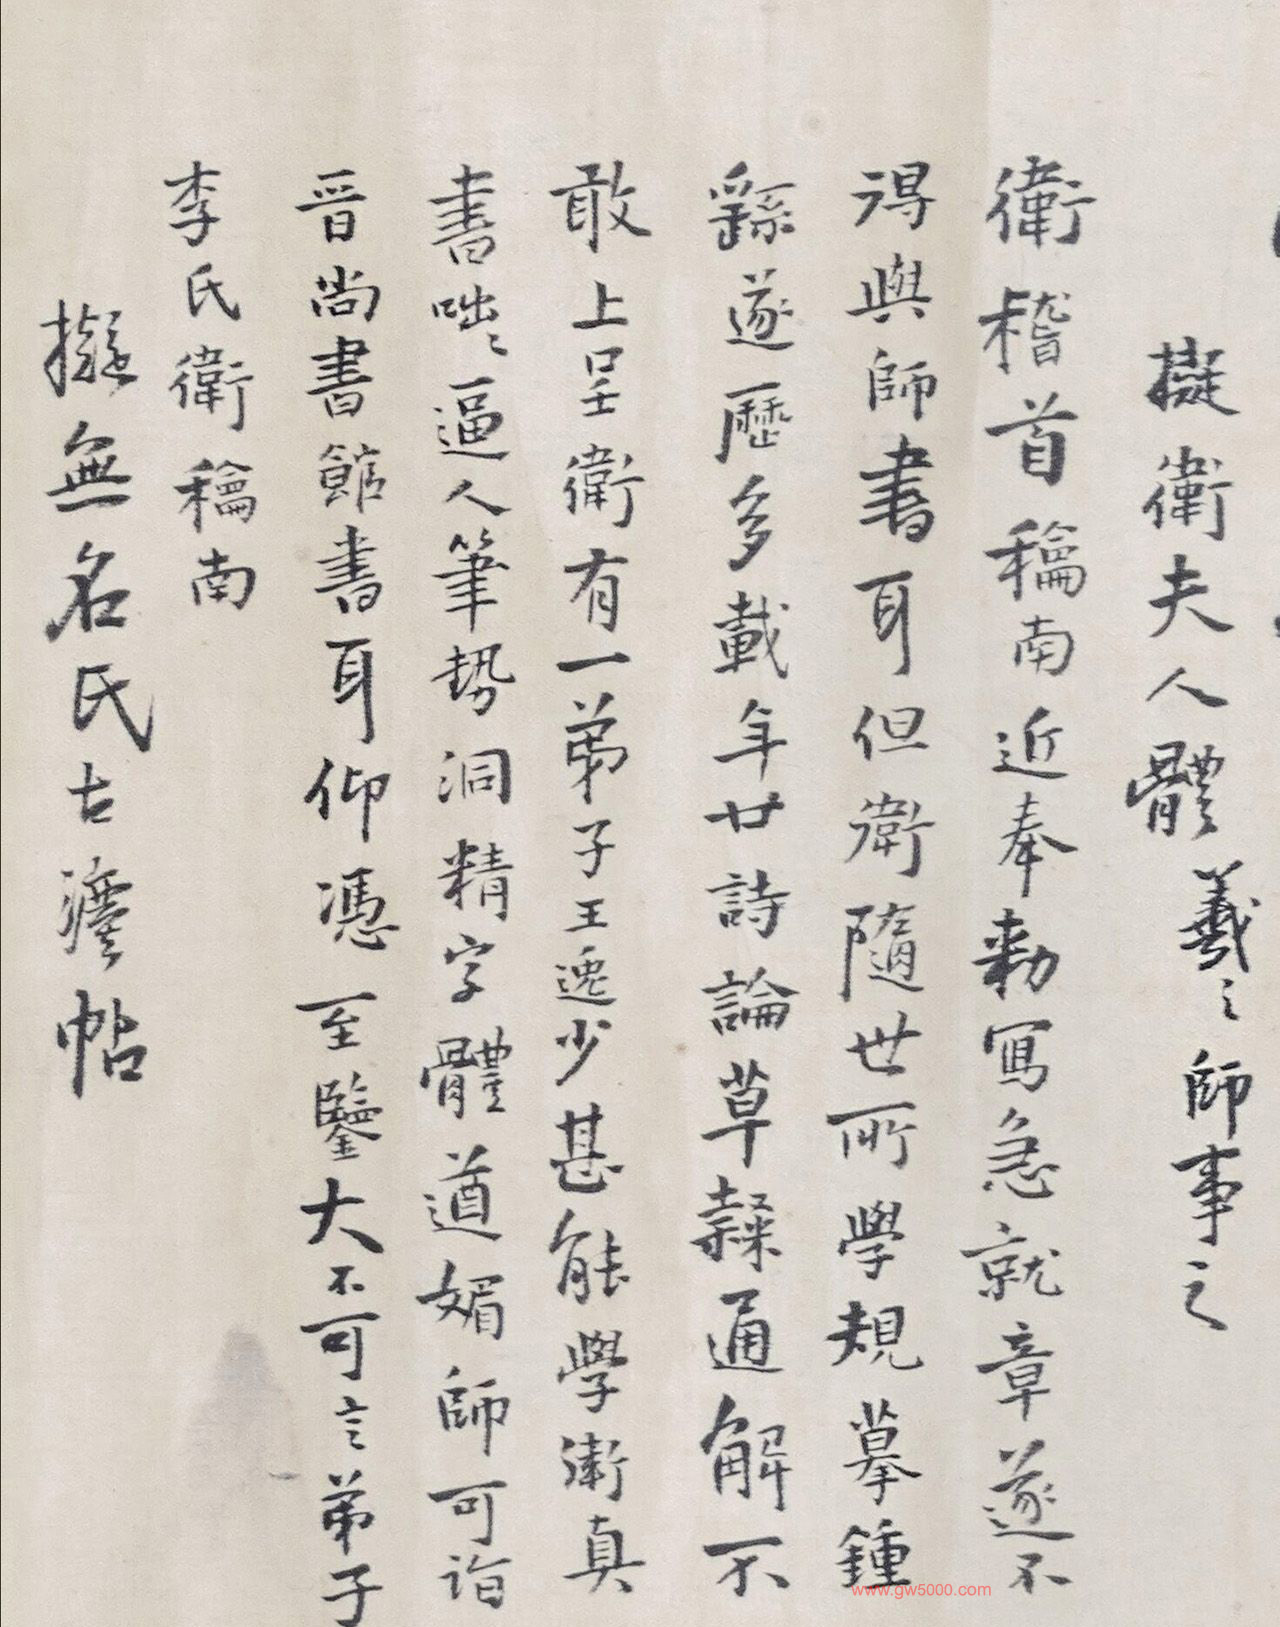 擬衛夫人體
羲之師事之
衛稽首稐南近奉勅寫急就章遂不
得與師書耳但衛隨世所學規摹鍾
繇遂歷多載年廿詩論草隸通解不
敢上呈衛有一弟子王逸少甚能學衛真
書咄咄逼人筆勢洞精字體遒媚師可詣
晉尚書館書耳仰憑至鑒大不可言弟子
李氏衛稐南
擬無名氏古澹帖
www.gw5000.com